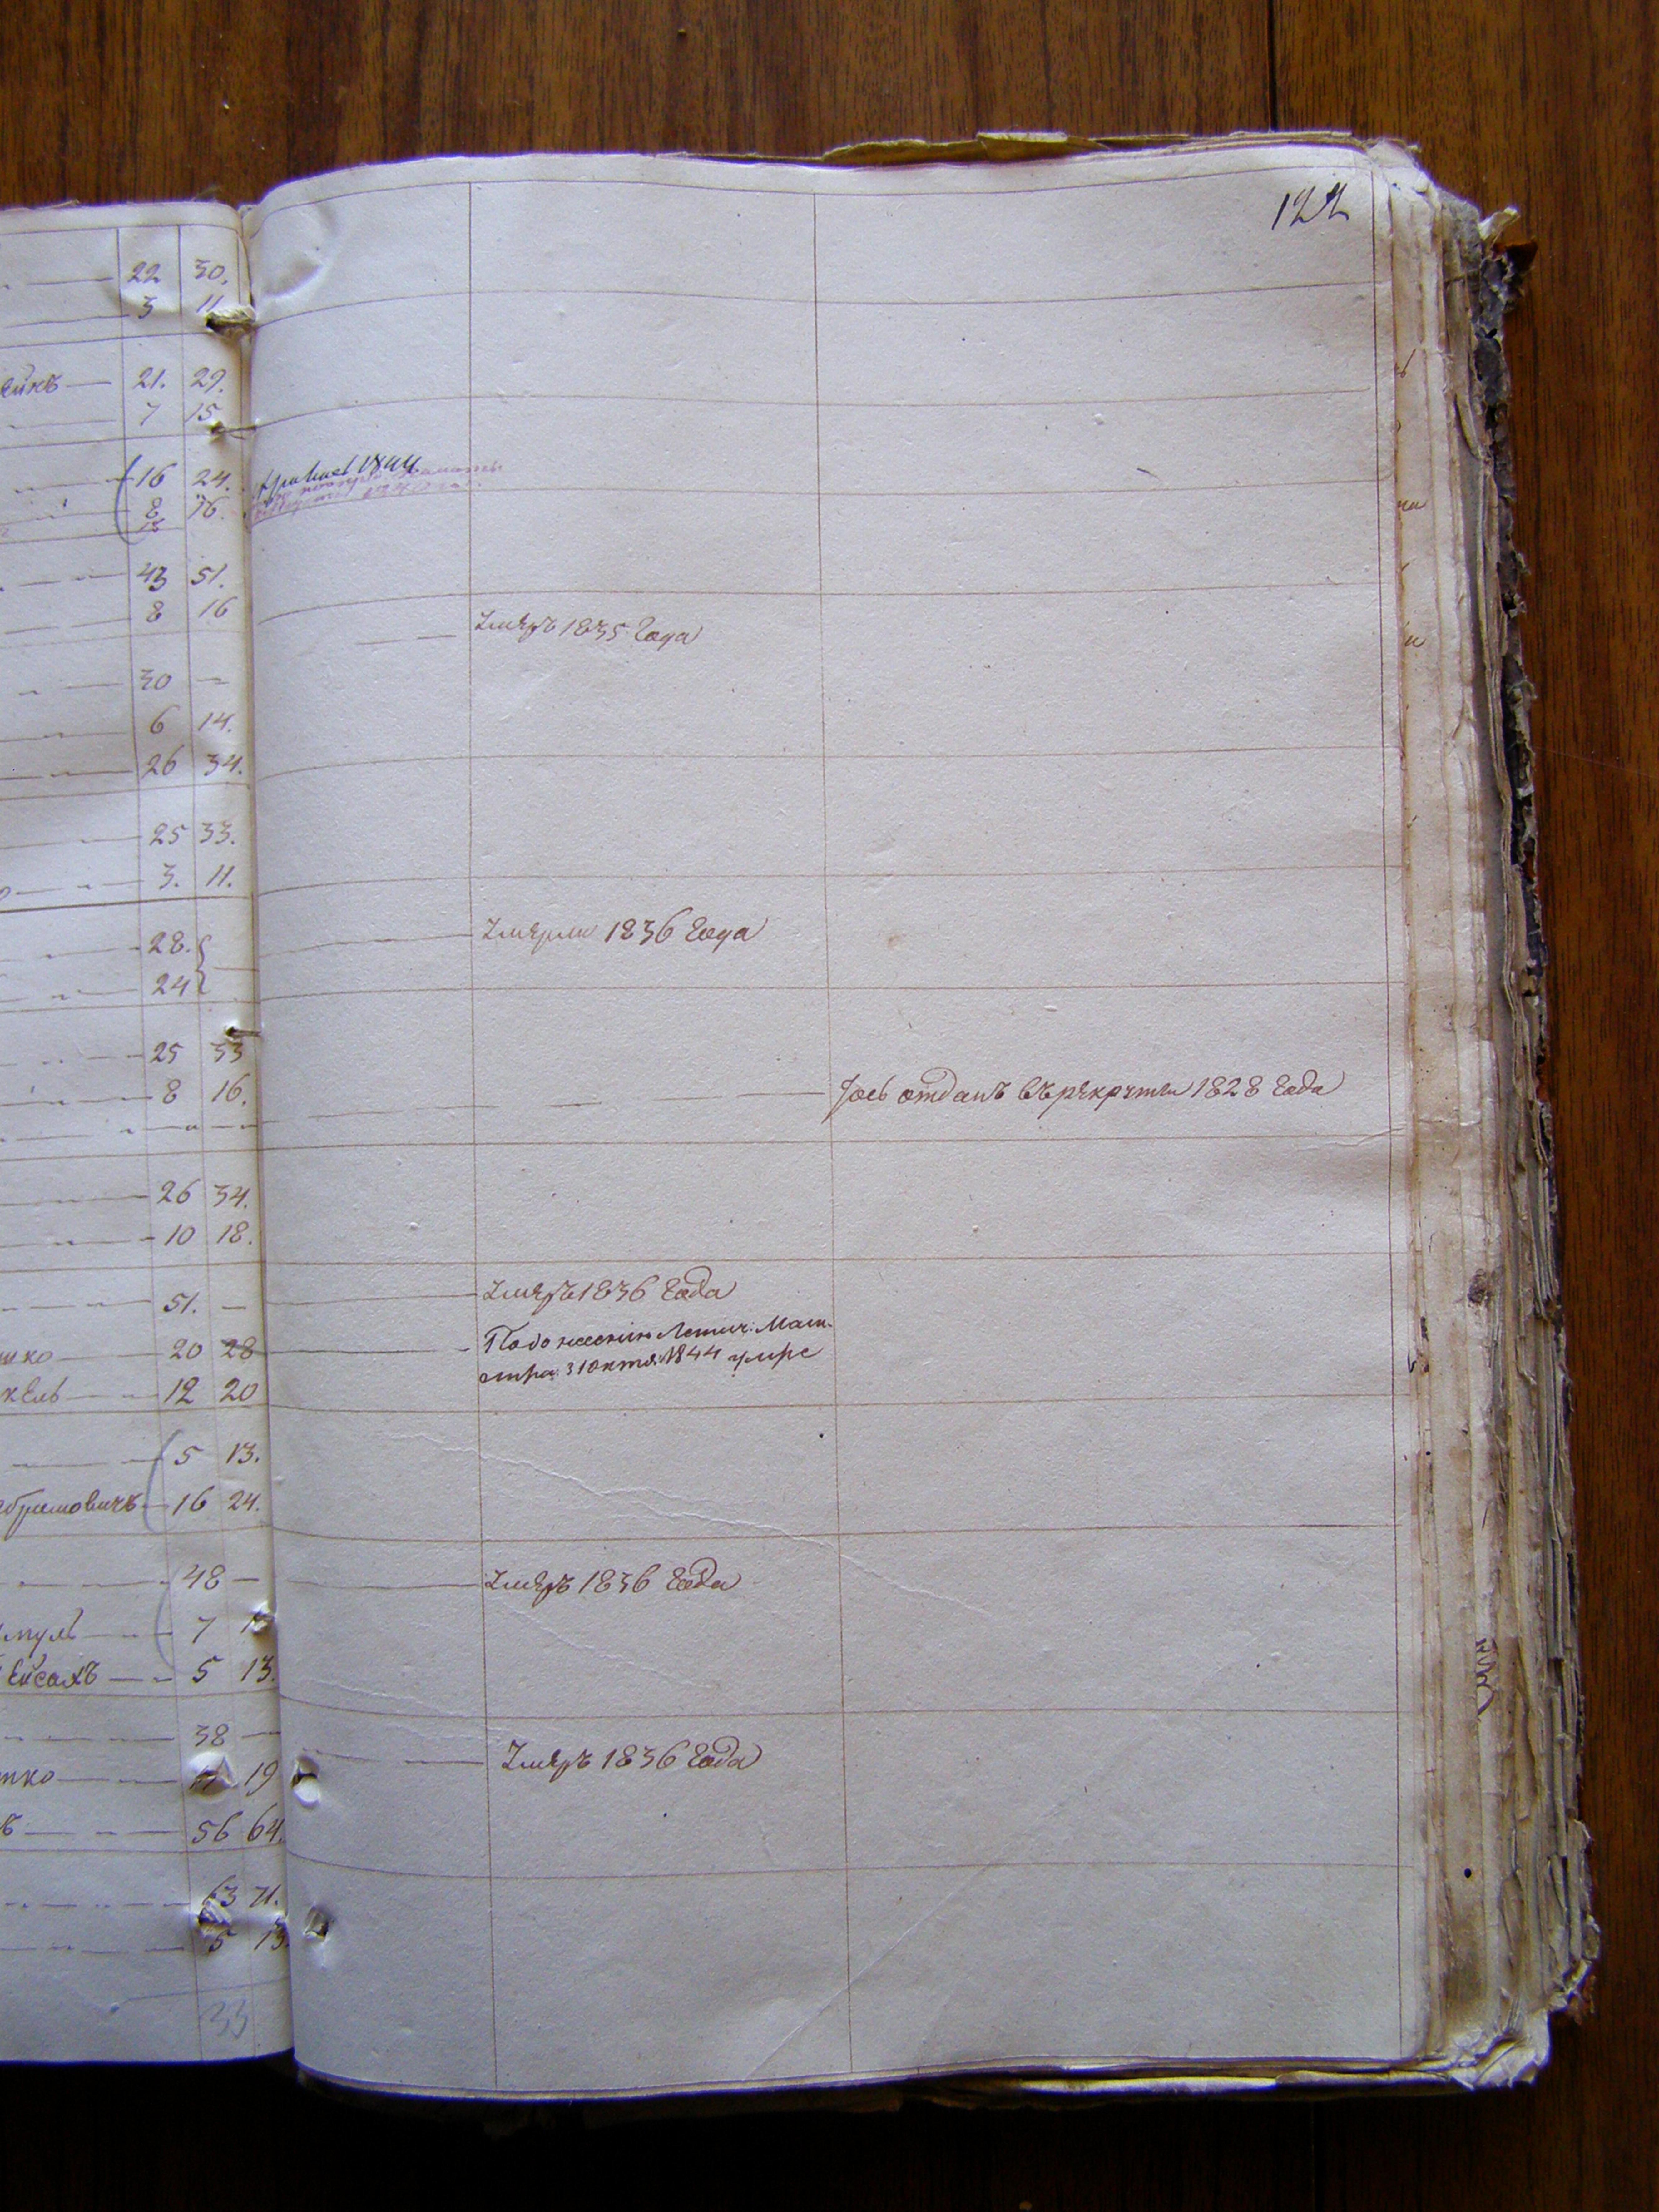 122
22 30.
3 11
ейкъ 21. 29.
7 15
16 24.
1844
8 16.
43 51.
8 16
умеръ 1835 Года
30 —
6 14.
26 34.
25 33.
3. 11.
умерли 1836 Года
28.
24
25 33
8 16.
отданъ въ рекруты 1828 Года
26 34.
10 18.
умеръ 1836 Года
51. —
По донесению Летич: Маги-
шко 20 28
стра: 31 октя: 1844 умре
кель 12 20
5 13.
абрамовичъ 16 24.
48 —
умеръ 1836 Года
муль 7
Ейсахъ 5 13.
38 —
умеръ 1836 Года
шко 19
ъ 56 64.
63 71.
5 13.
33